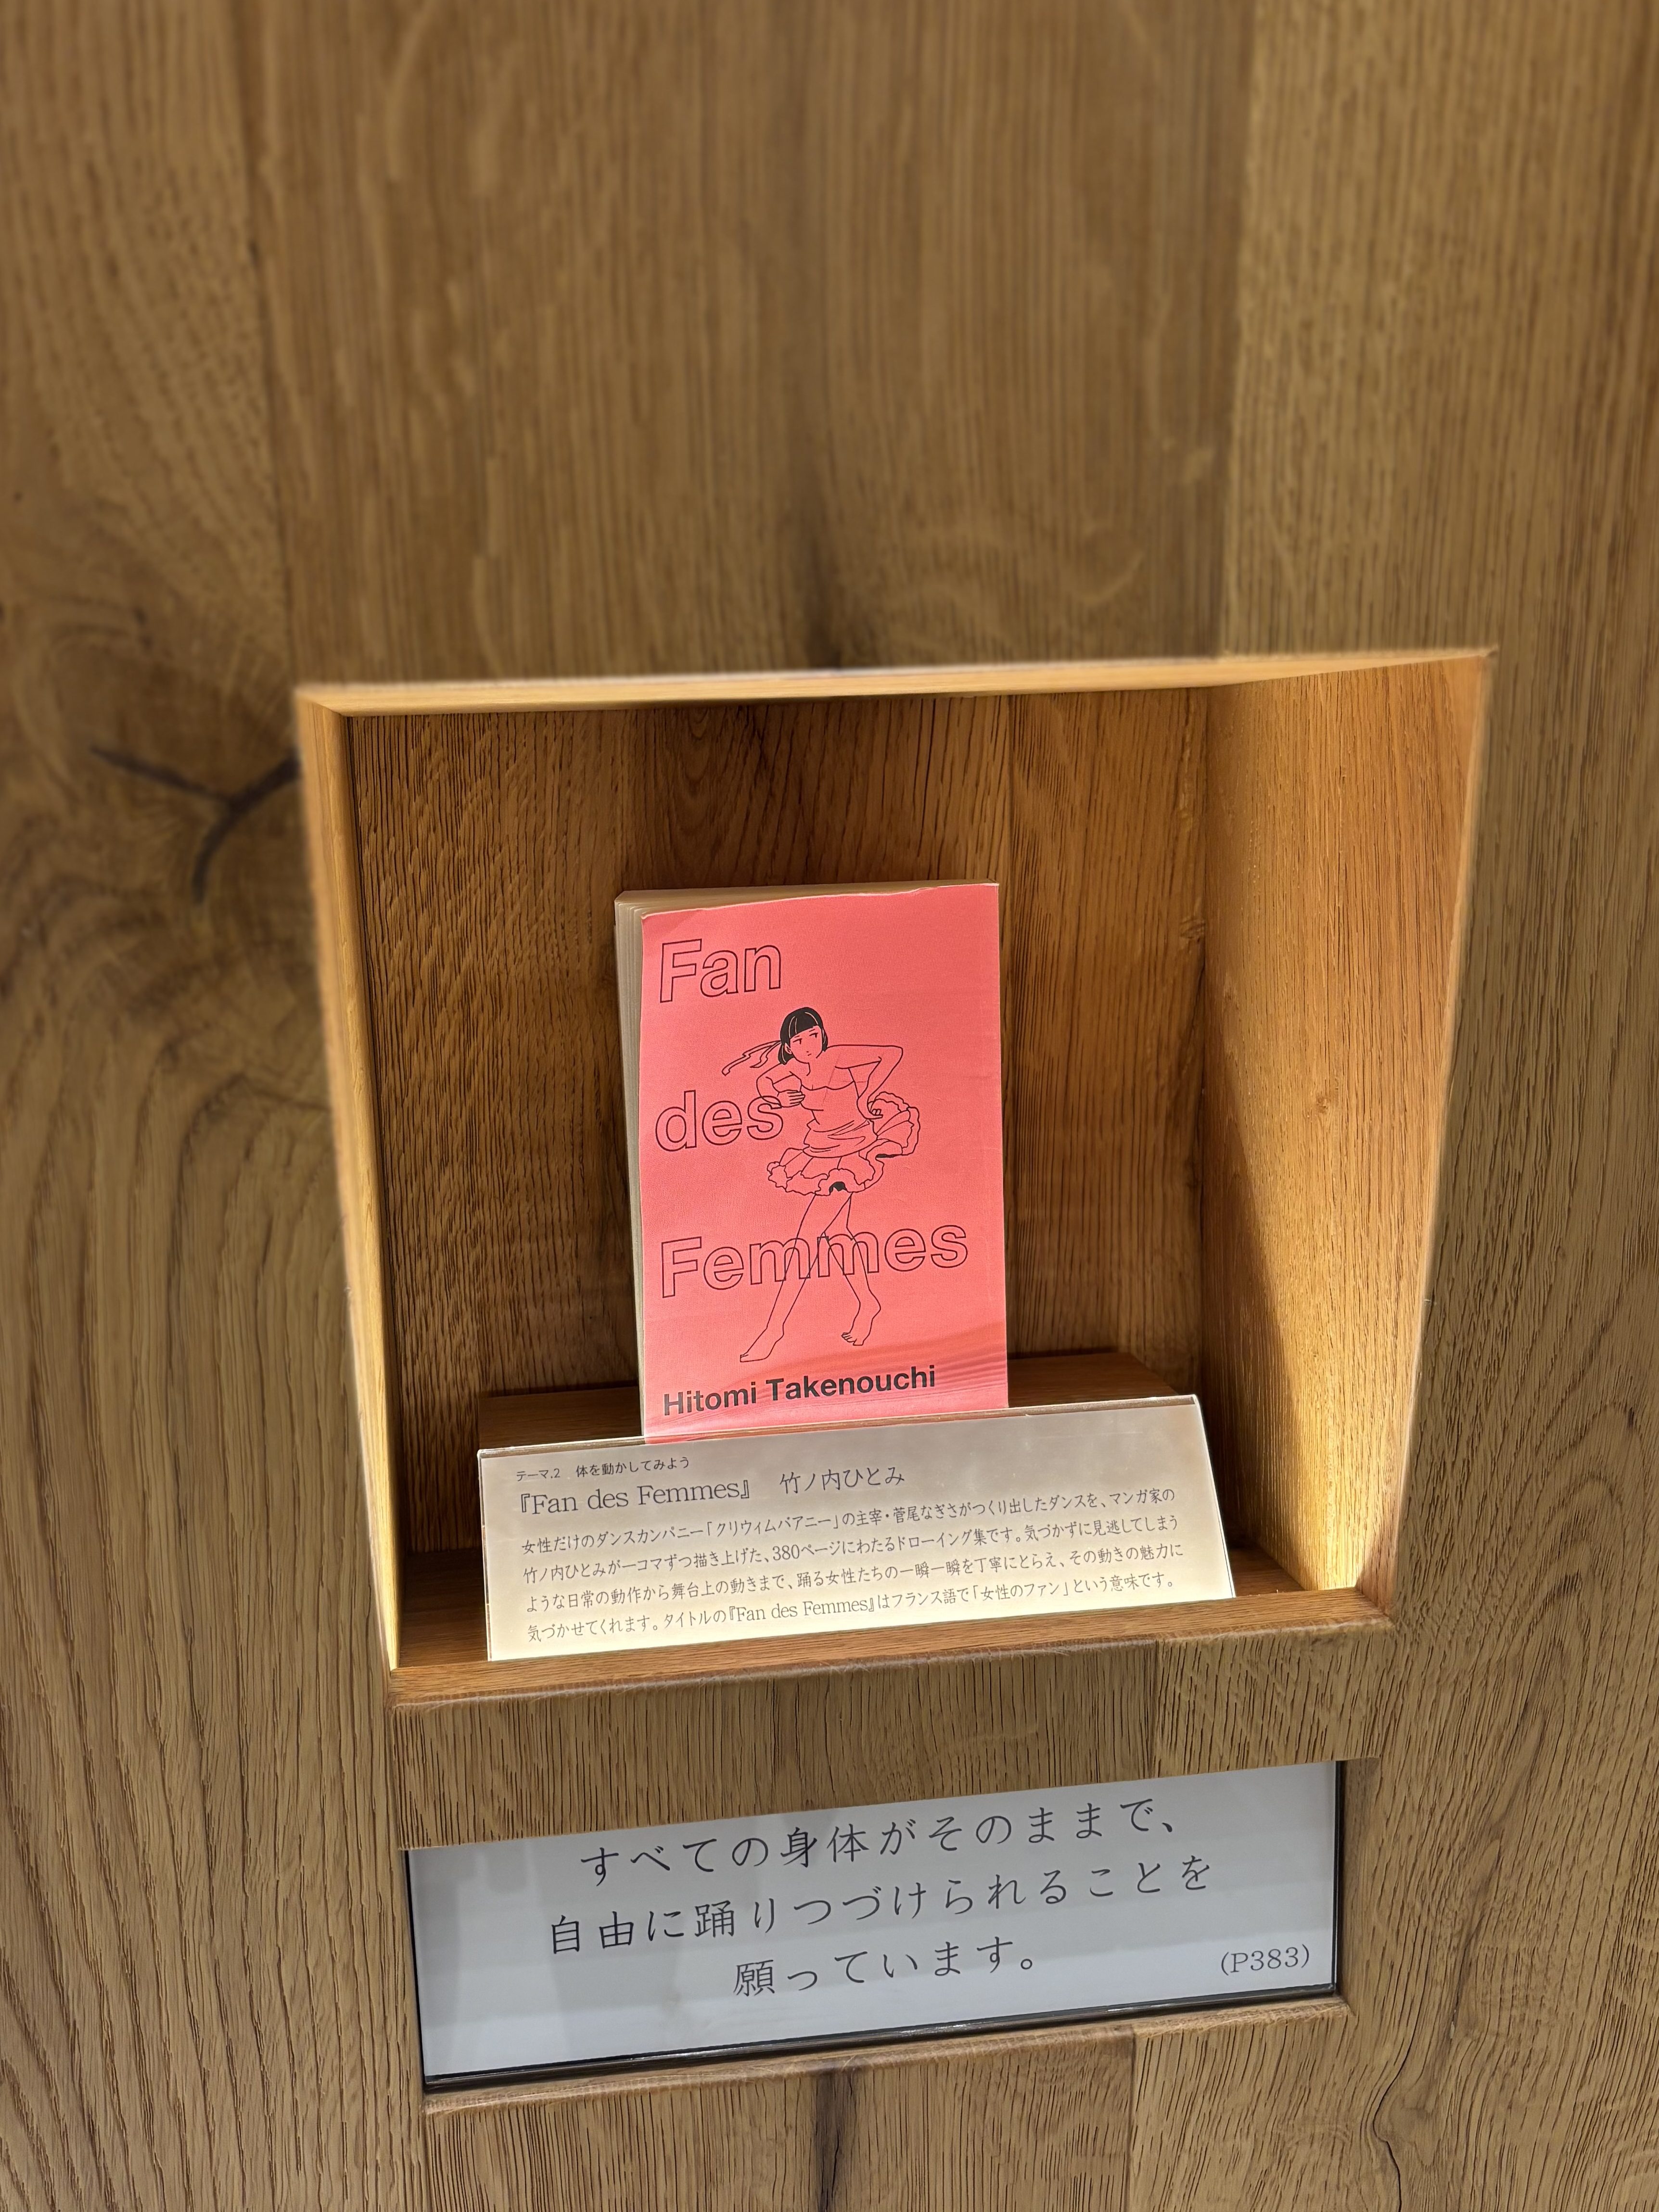 Fan
des
Femmes
Hitomi Takenouchi
テーマ.2　体を動かしてみよう
『Fan des Femmes』　竹ノ内ひとみ
女性だけのダンスカンパニー「クリウィムバアニー」の主宰・菅尾なぎさがつくり出したダンスを、マンガ家の
竹ノ内ひとみが一コマずつ描き上げた、380ページにわたるドローイング集です。気づかずに見逃してしまう
ような日常の動作から舞台上の動きまで、踊る女性たちの一瞬一瞬を丁寧にとらえ、その動きの魅力に
気づかせてくれます。タイトルの『Fan des Femmes』はフランス語で「女性のファン」という意味です。
すべての身体がそのままで、
自由に踊りつづけられることを
願っています。
(P383)